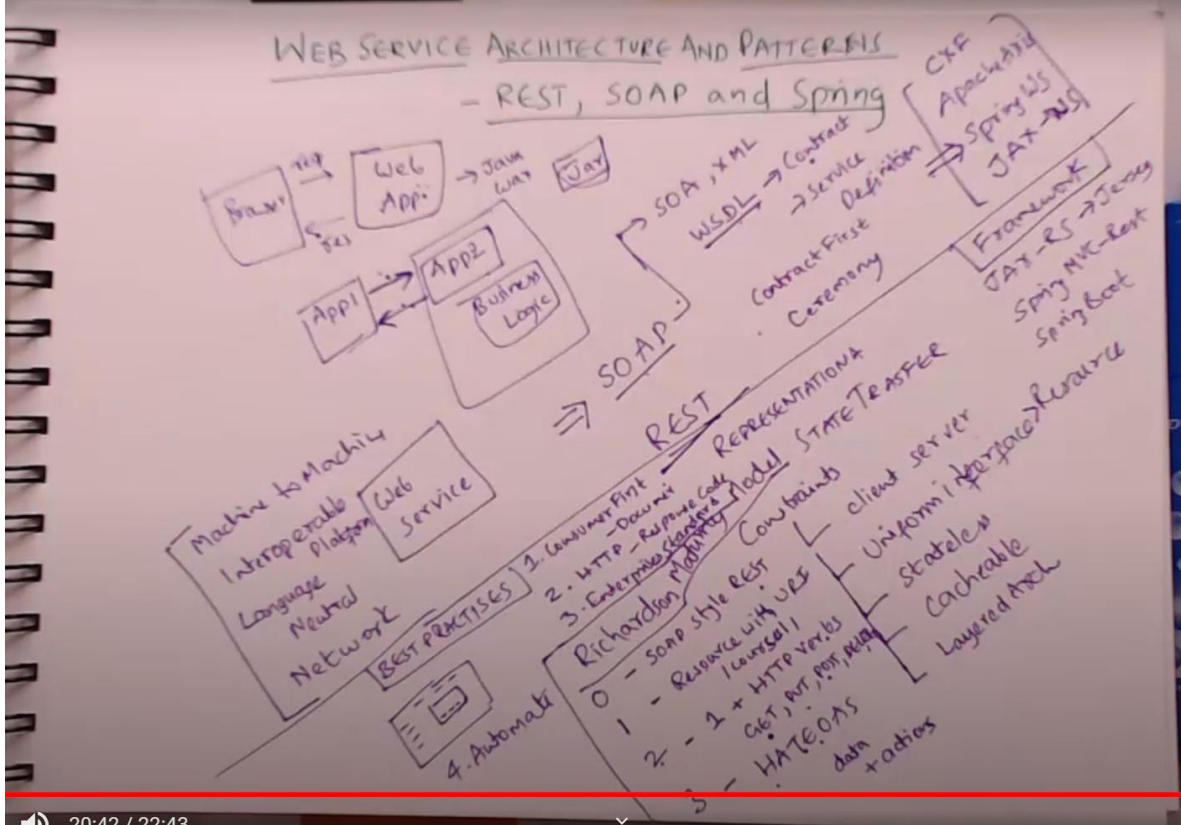 WEB SERVICE ARCHITECTURE AND PATTERNS
- REST, SOAP and Spring
Browser
req
res
Web
App
→ Java
War
Jar
App1
App2
Business
Logic
⇒ SOAP
→ SOA, XML
WSDL → Contract
→ Service
Definition
Contract First
Ceremony
CXF
Apache Axis
⇒ Spring WS
JAX-WS
Framework
JAX-RS → Jersey
Spring MVC-Rest
Spring Boot
Machine to Machine
Interoperable
Platform
Language
Neutral
Network
Web
Service
REST
REPRESENTATIONA
STATE TRASFER
BEST PRACTISES
1. Consumer First
2. HTTP - Response Code
3. Enterprise Standard
4. Automate
Richardson Maturity Model
0 - SOAP style REST
1 - Resource with URI
2 - 1 + HTTP verbs
GET, PUT, POST,
3 - HATEOAS
data
+ actions
Constraints
client server
Uniform interface > Resource
stateless
Cacheable
Layered Arch
20:42 / 22:43